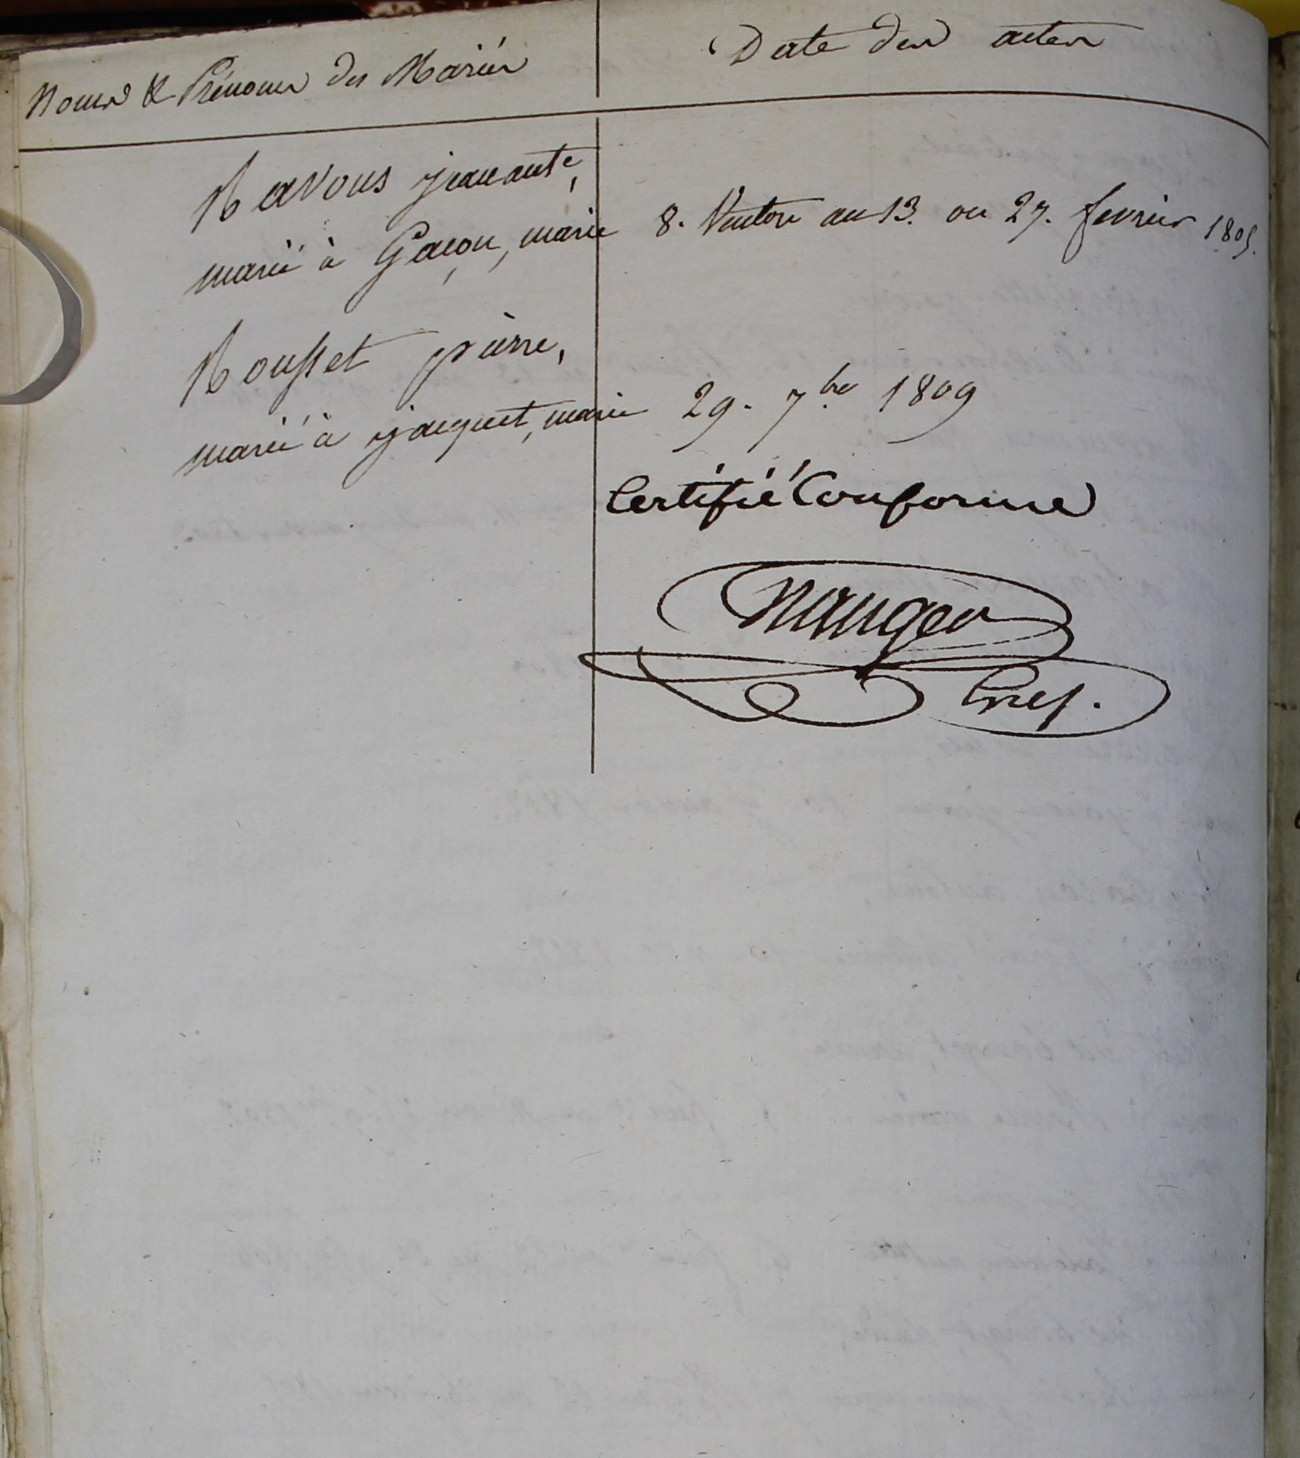 Noms & Prénoms des Mariés
Date des actes
Ravous jean ante,
marié à Gaçon, marie 8. Ventose an 13. ou 27. fevrier 1805.
Rousset pierre,
marié à jacquet, marie 29. 7bre 1809
Certifié Conforme